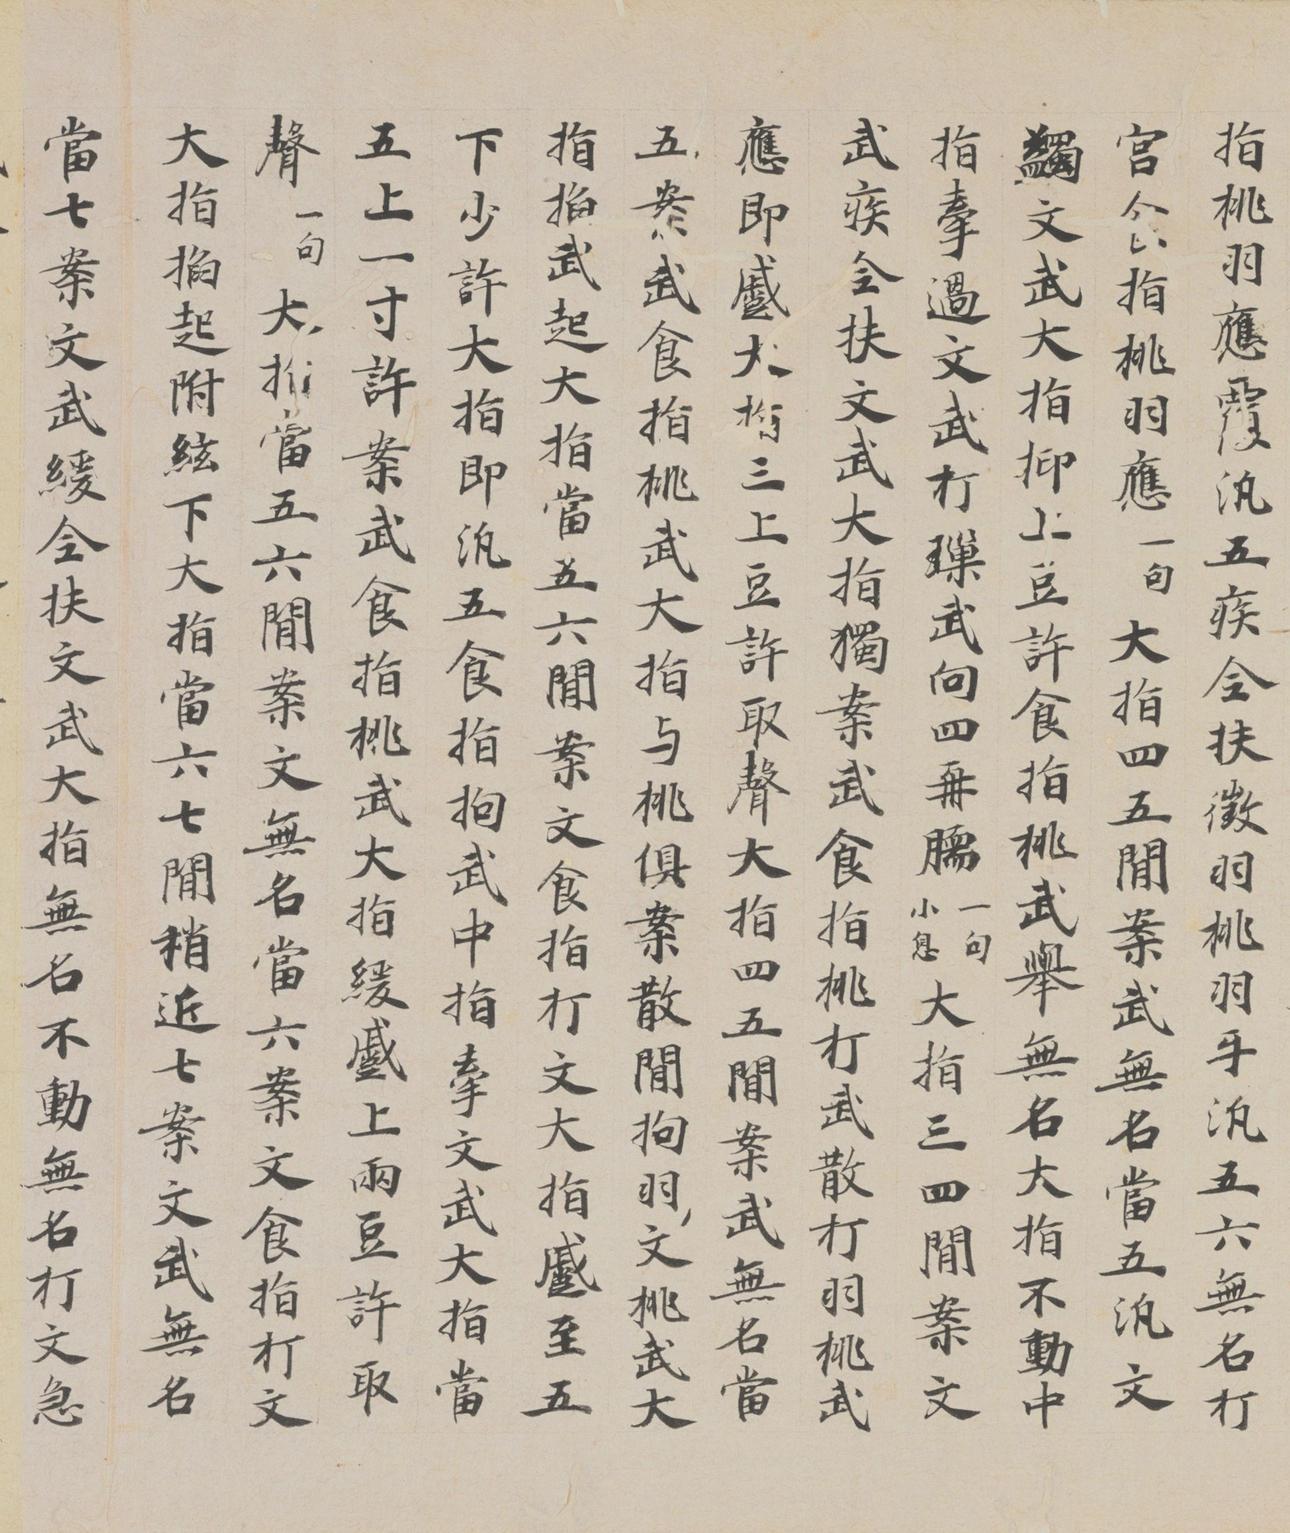 指桃羽應覆汎五疾全扶徵羽桃羽牙汎五六無名打
宮食指桃羽應一句大指四五間案武無名當五汎文
蠲文武大指抑上豆許食指桃武舉無名大指不動中
指牽過文武打璅武向四再臑一句小息大指三四間案文
武疾全扶文武大指獨案武食指桃打武散打羽桃武
應即蹙大指三上豆許取聲大指四五間案武無名當
五案武食指桃武大指与桃俱案散間拘羽文桃武大
指掐武起大指當五六間案文食指打文大指蹙至五
下少許大指即汎五食指拘武中指牽文武大指當
五上一寸許案武食指桃武大指緩蹙上兩豆許取
聲一句大指當五六間案文無名當六案文食指打文
大指掐起附絃下大指當六七間稍近七案文武無名
當七案文武緩全扶文武大指無名不動無名打文急